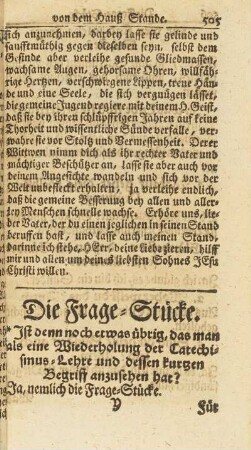 von dem Hauß Stande. 505
sich anzunehmen, darbey lasse sie gelinde und
sanfftmüthig gegen dieselben seyn. selbst dem
Gesinde aber verleihe gesunde Gliedmassen,
wachsame Augen, gehorsame Ohren, willfäh-
rige Hertzen, verschwiegene Lippen, treue Hän-
de und eine Seele, die sich vergnügen lässet,
die gemeine Jugend regiere mit deinem H. Geist,
daß sie bey ihren schlüpfferigen Jahren auf keine
Thorheit und wissentliche Sünde verfalle, ver-
wahre sie vor Stoltz und Vermessenheit. Derer
Witwen nimm dich als ihr rechter Vater und
mächtiger Beschützer an, lasse sie aber auch vor
deinem Angesichte wandeln und sich vor der
Welt unbefleckt erhalten; ja verleihe endlich,
daß die gemeine Besserung bey allen und aller-
ley Menschen schnelle wachse. Erhöre uns, lie-
ber Vater, der du einen jeglichen in seinen Stand
beruffen hast, und lasse auch meinen Stand,
darinne ich stehe, HErr, deine Liebe zieren, hilff
mir und allen um deines liebsten Sohnes JEsu
Christi willen.
Die Frage-Stücke.
Ist denn noch etwas übrig, das man
als eine Wiederholung der Catechi-
smus-Lehre und dessen kurtzen
Begriff anzusehen hat?
Ja, nemlich die Frage-Stücke.
Y Für